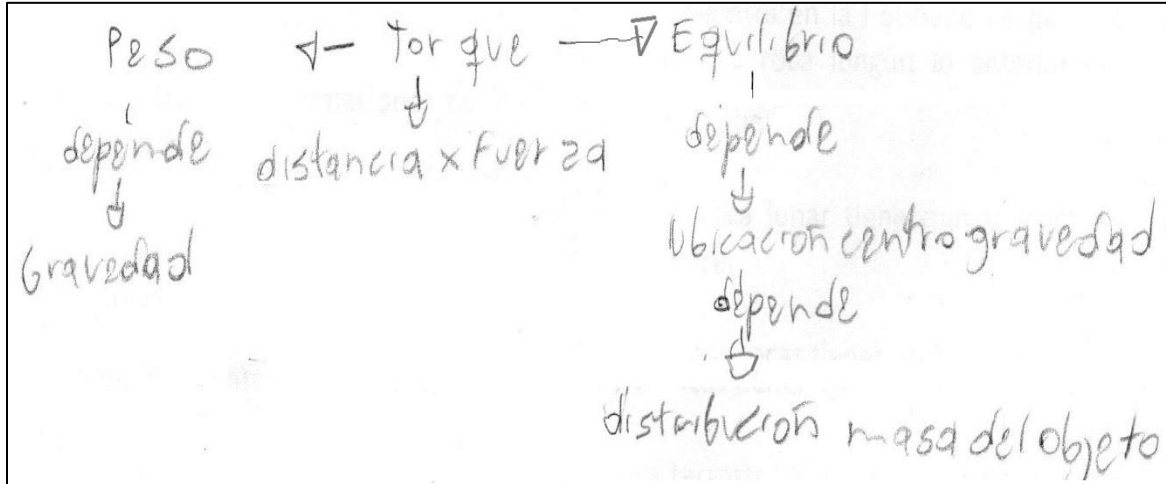 Peso ← Torque → Equilibrio
depende distancia x Fuerza depende
Gravedad Ubicación centro gravedad
depende
distribución masa del objeto